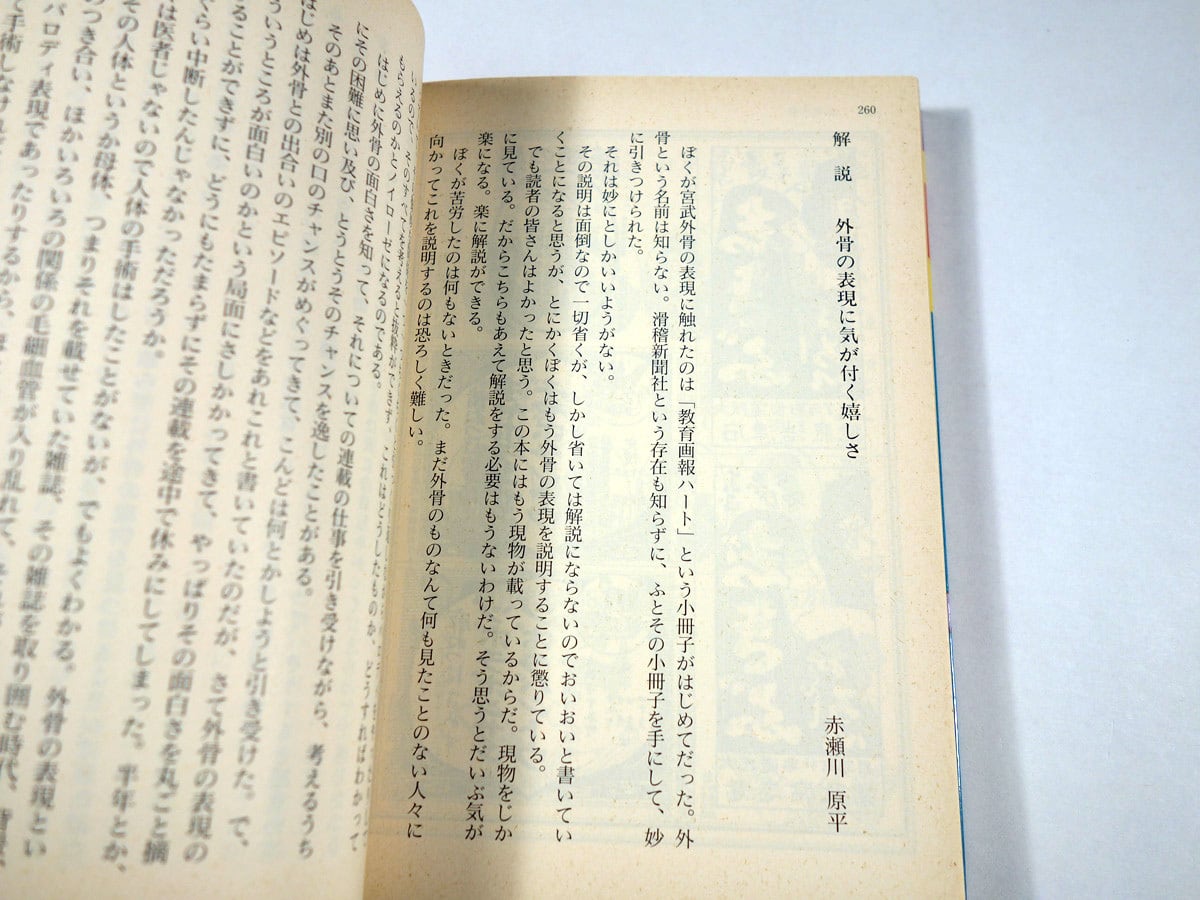 260
解説 外骨の表現に気が付く嬉しさ
赤瀬川 原平
ぼくが宮武外骨の表現に触れたのは「教育画報ハート」という小冊子がはじめてだった。外
骨という名前は知らない。滑稽新聞社という存在も知らずに、ふとその小冊子を手にして、妙
に引きつけられた。
それは妙にとしかいいようがない。
その説明は面倒なので一切省くが、しかし省いては解説にならないのでおいおいと書いてい
くことになると思うが、とにかくぼくはもう外骨の表現を説明することに懲りている。
でも読者の皆さんはよかったと思う。この本にはもう現物が載っているからだ。現物をじか
に見ている。だからこちらもあえて解説をする必要はもうないわけだ。そう思うとだいぶ気が
楽になる。楽に解説ができる。
ぼくが苦労したのは何もないときだった。まだ外骨のものなんて何も見たことのない人々に
向かってこれを説明するのは恐ろしく難しい。
もらえるのかとノイローゼになるのである。
はじめに外骨の面白さを知って、それについての連載の仕事を引き受けながら、考えるうち
にその困難に思い及び、とうとうそのチャンスを逸したことがある。
そのあとまた別の口のチャンスがめぐってきて、こんどは何とかしようと引き受けた。で、
はじめは外骨との出合いのエピソードなどをあれこれと書いていたのだが、さて外骨の表現の
ういうところが面白いのかという局面にさしかかってきて、やっぱりその面白さを丸ごと摘
ることができずに、どうにもたまらずにその連載を途中で休みにしてしまった。半年とか、
ぐらい中断したんじゃなかっただろうか。
は医者じゃないので人体の手術はしたことがないが、でもよくわかる。外骨の表現とい
その人体というか母体、つまりそれを載せていた雑誌、その雑誌を取り囲む時代、背景、
つき合い、ほかいろいろの関係の毛細血管が入り乱れて、
パロディ表現であったりするから、
て手術しなけれ